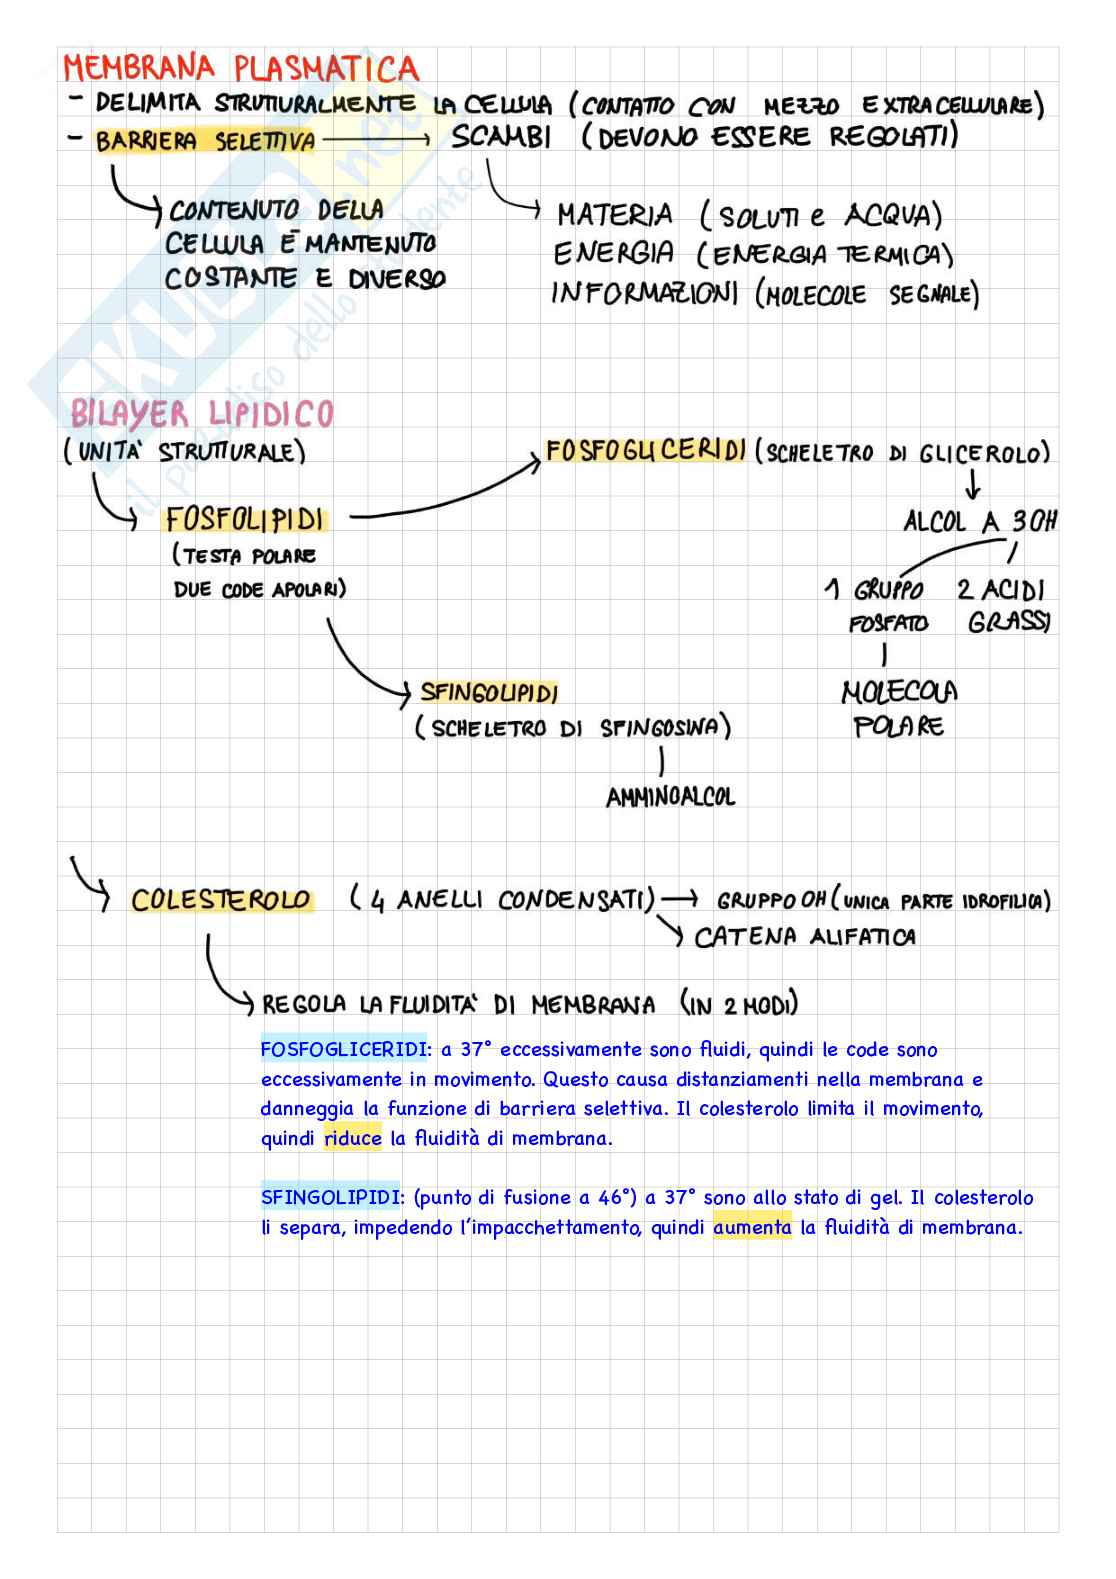 MEMBRANA PLASMATICA
- DELIMITA STRUTTURALMENTE LA CELLULA (CONTATTO CON MEZZO EXTRACELLULARE)
- BARRIERA SELETTIVA → SCAMBI (DEVONO ESSERE REGOLATI)
CONTENUTO DELLA
CELLULA È MANTENUTO
COSTANTE E DIVERSO
MATERIA (SOLUTI e ACQUA)
ENERGIA (ENERGIA TERMICA)
INFORMAZIONI (MOLECOLE SEGNALE)
SKUOLA.net
il paradiso dello studente
BILAYER LIPIDICO
(UNITA' STRUTTURALE)
FOSFOGLICERIDI (SCHELETRO DI GLICEROLO)
FOSFOLIPIDI
(TESTA POLARE
DUE CODE APOLARI)
ALCOL A 3 OH
1 GRUPPO
FOSFATO
2 ACIDI
GRASSI
MOLECOLA
POLARE
SFINGOLIPIDI
(SCHELETRO DI SFINGOSINA)
AMMINOALCOL
COLESTEROLO (4 ANELLI CONDENSATI) → GRUPPO OH (UNICA PARTE IDROFILICA)
CATENA ALIFATICA
REGOLA LA FLUIDITA' DI MEMBRANA (IN 2 MODI)
FOSFOGLICERIDI: a 37° eccessivamente sono fluidi, quindi le code sono
eccessivamente in movimento. Questo causa distanziamenti nella membrana e
danneggia la funzione di barriera selettiva. Il colesterolo limita il movimento,
quindi riduce la fluidità di membrana.
SFINGOLIPIDI: (punto di fusione a 46°) a 37° sono allo stato di gel. Il colesterolo
li separa, impedendo l'impacchettamento, quindi aumenta la fluidità di membrana.